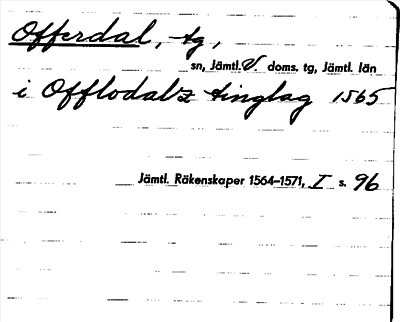 Offerdal, tg,
sn, Jämtl. V. doms. tg, Jämtl. län
i Offlodalz tinglag 1565
Jämtl. Räkenskaper 1564–1571, I s. 96